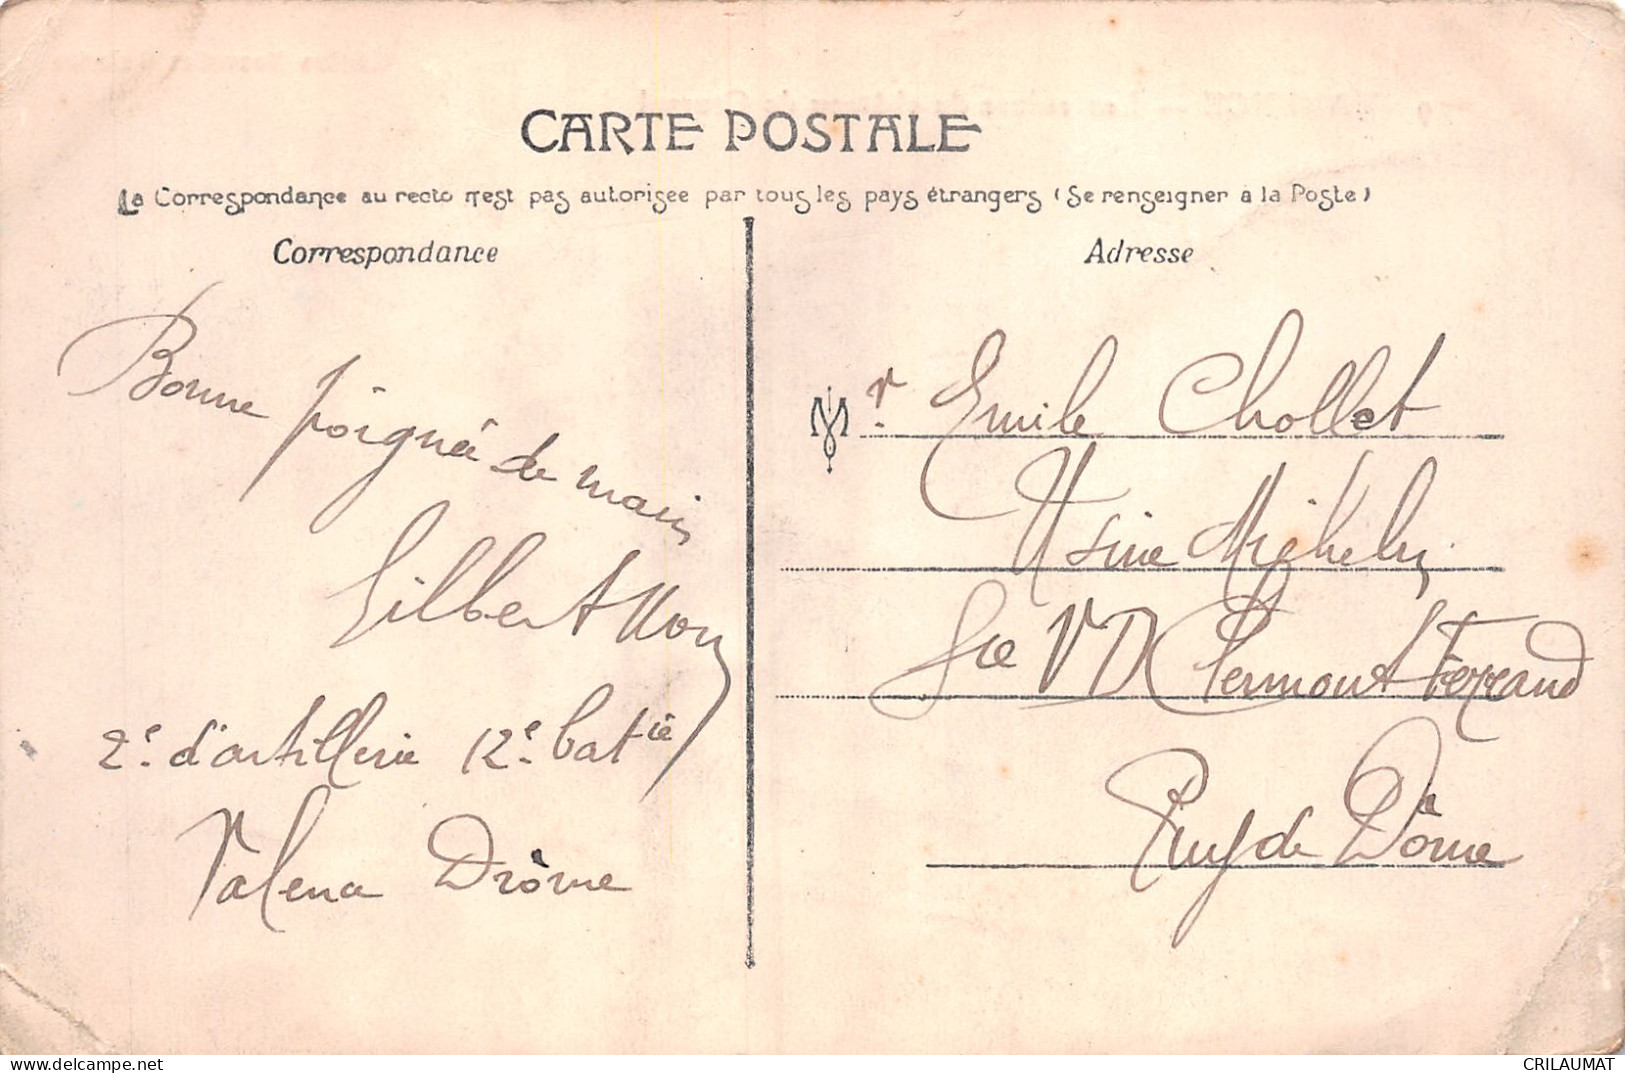 CARTE POSTALE
La Correspondance au recto n'est pas autorisée par tous les pays étrangers (Se renseigner à la Poste)
Correspondance
Bonne poignée de main
Gilbert
2e d'artillerie 12e batie
Valence Drôme
Adresse
Mr. Emile Chollet
Usine Michelin
Sce VD Clermont Ferrand
Puy de Dôme
CRILAUMAT